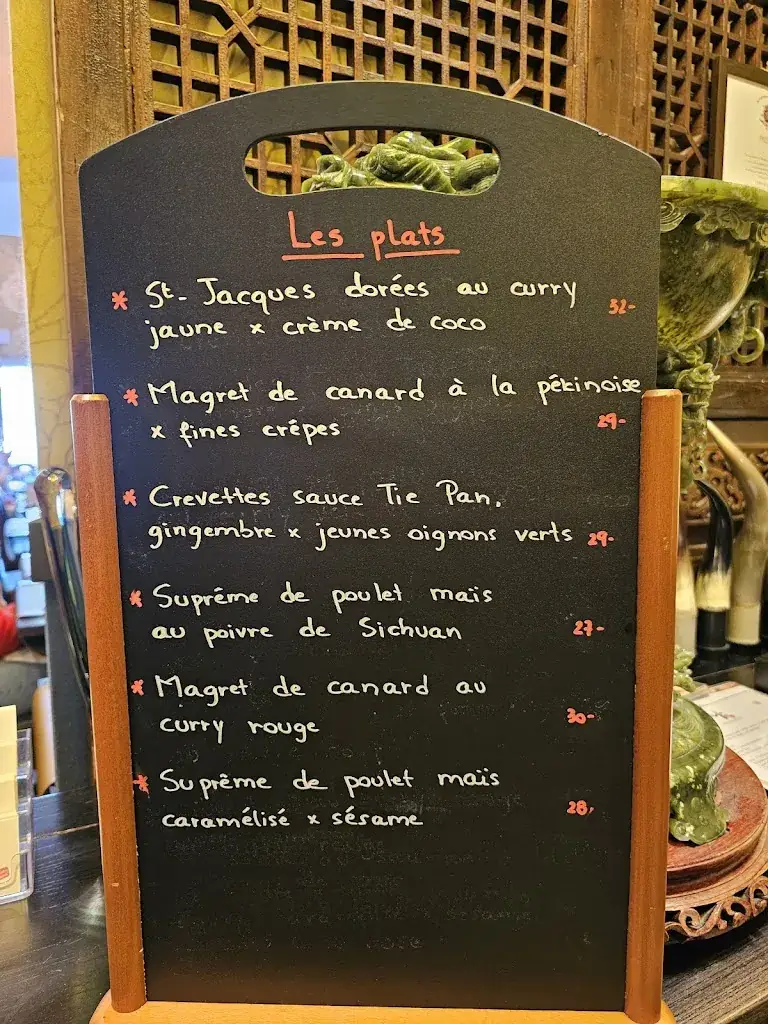 Les plats
* St- Jacques dorées au curry
jaune x crème de coco 32-
* Magret de canard à la pékinoise
x fines crêpes 29-
* Crevettes sauce Tie Pan,
gingembre x jeunes oignons verts 29-
* Suprême de poulet maïs
au poivre de Sichuan 27-
* Magret de canard au
curry rouge 30-
* Suprême de poulet maïs
caramélisé x sésame 28,